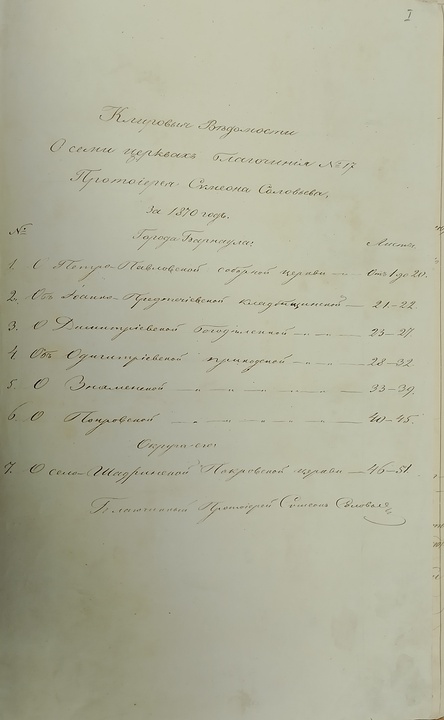 I
Клировыя Ведомости
О семи церквахъ Благочинія № 17
Протоіерея Симеона Соловьева,
за 1870 годъ.
Города Барнаула:
№ Листы
1. О Петро-Павловской соборной церкви — Отъ 1 до 20.
2. Объ Іоанно-Предтечіевской кладбищенской — 21–22.
3. О Димитріевской богодѣленной — " — " — 23–27.
4. Объ Одигитріевской приходской — " — " — 28–32.
5. О Знаменской — " — " — " — " — 33–39.
6. О Покровской — " — " — " — " — 40–45.
Округи его:
7. О село-Шадринской Покровской церкви — 46–51.
Благочинный Протоіерей Симеонъ Соловьевъ